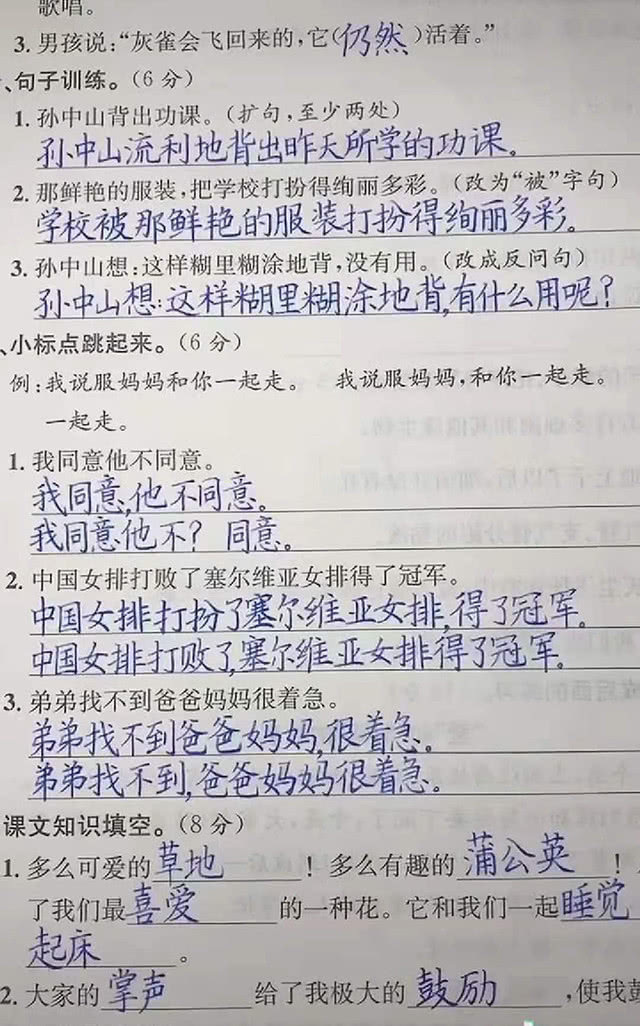 歌唱。
3. 男孩说:“灰雀会飞回来的,它(仍然)活着。”
、句子训练。(6分)
1. 孙中山背出功课。(扩句,至少两处)
孙中山流利地背出昨天所学的功课。
2. 那鲜艳的服装,把学校打扮得绚丽多彩。(改为“被”字句)
学校被那鲜艳的服装打扮得绚丽多彩。
3. 孙中山想:这样糊里糊涂地背,没有用。(改成反问句)
孙中山想:这样糊里糊涂地背,有什么用呢?
、小标点跳起来。(6分)
例:我说服妈妈和你一起走。 我说服妈妈,和你一起走。
一起走。
1. 我同意他不同意。
我同意,他不同意。
我同意他不? 同意。
2. 中国女排打败了塞尔维亚女排得了冠军。
中国女排打扮了塞尔维亚女排,得了冠军。
中国女排打败了,塞尔维亚女排得了冠军。
3. 弟弟找不到爸爸妈妈很着急。
弟弟找不到爸爸妈妈,很着急。
弟弟找不到,爸爸妈妈很着急。
课文知识填空。(8分)
1. 多么可爱的草地! 多么有趣的蒲公英!
了我们最喜爱的一种花。它和我们一起睡觉
起床。
2. 大家的掌声给了我极大的鼓励,使我鼓